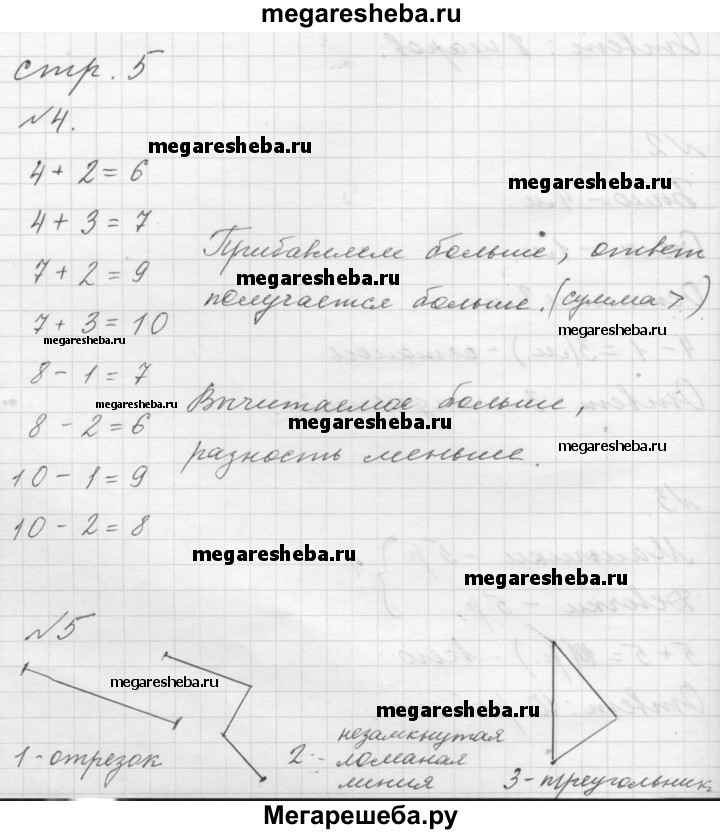 megaresheba.ru
стр. 5
№4.
megaresheba.ru
4 + 2 = 6
megaresheba.ru
4 + 3 = 7
Прибавляем больше, ответ
7 + 2 = 9
megaresheba.ru
получается больше. (сумма >)
7 + 3 = 10
megaresheba.ru
megaresheba.ru
8 - 1 = 7
megaresheba.ru
Вычитаемое больше,
8 - 2 = 6
megaresheba.ru
разность меньше.
megaresheba.ru
10 - 1 = 9
10 - 2 = 8
megaresheba.ru
megaresheba.ru
№5
megaresheba.ru
megaresheba.ru
1 - отрезок
2 - незамкнутая
ломаная
линия
3 - треугольник.
Мегарешеба.ру